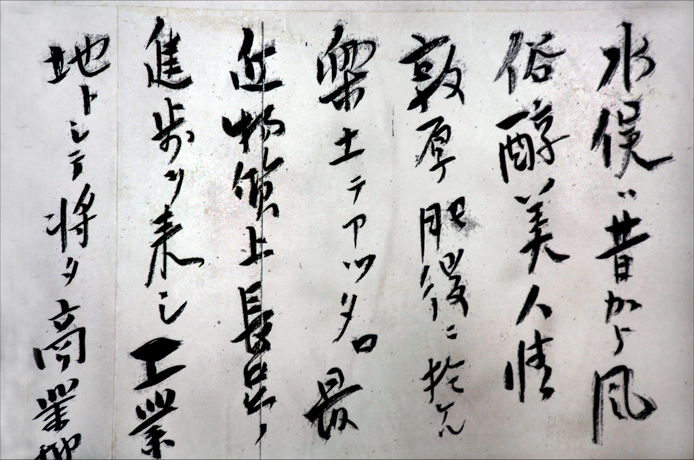 水俣ハ昔カラ風
俗醇美人情
敦厚肥後ニ於ケル
楽土テアツタ口最
近物質上長足ノ
進歩ヲ来シ工業
地トシテ将タ商業